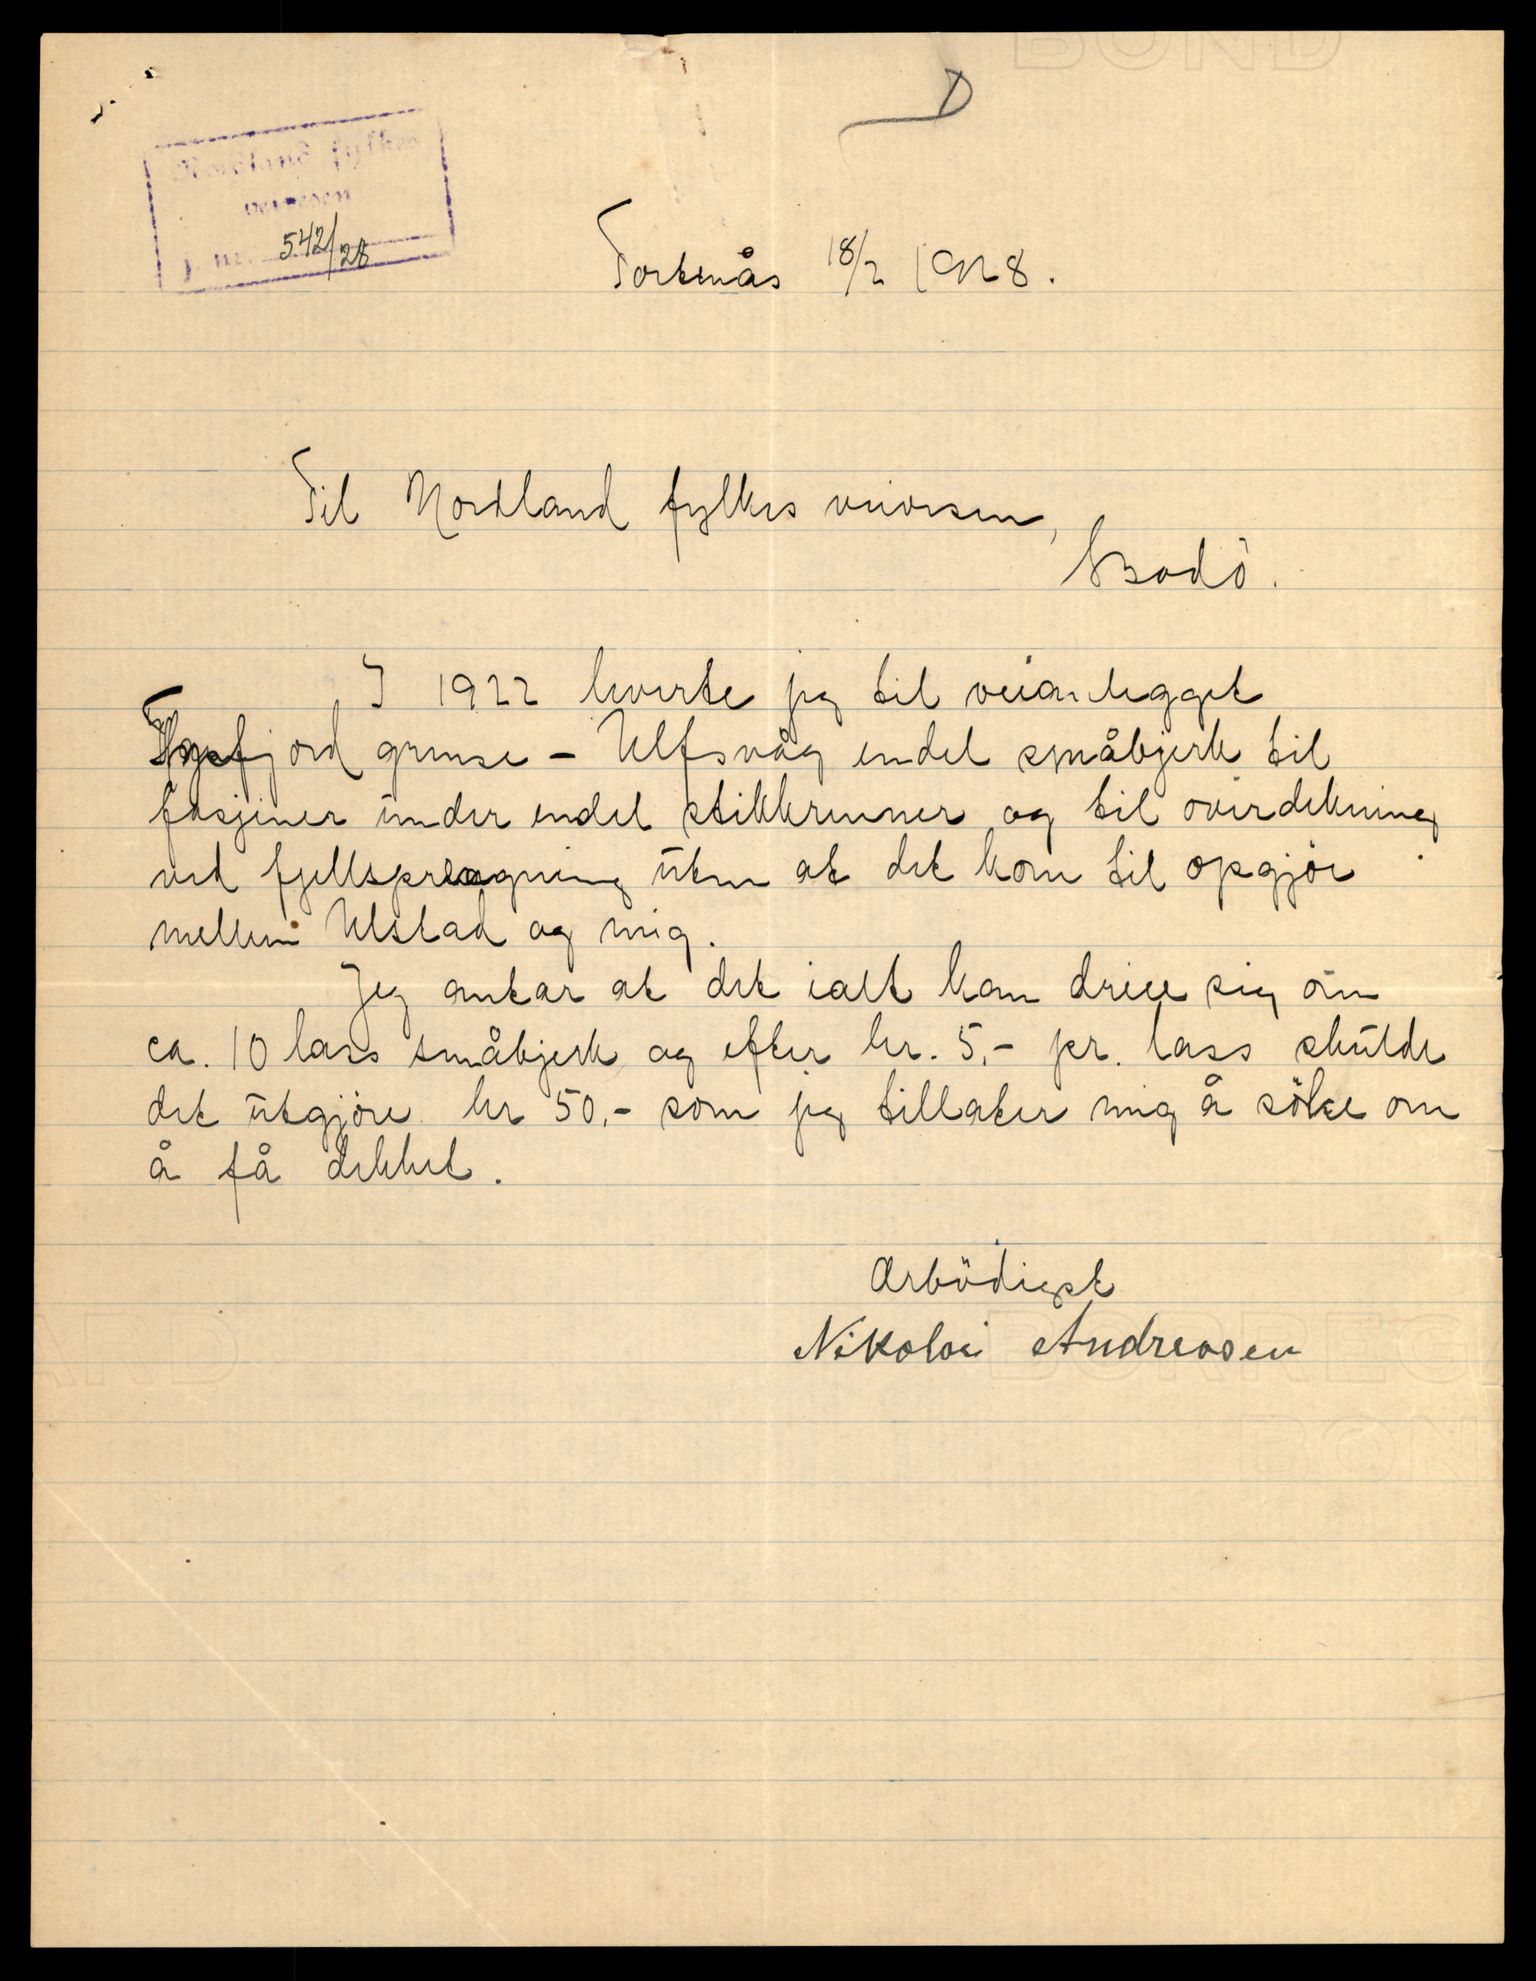 BOND
D
Nordland fylkes
veivesen
j. nr. 542/28
Tortenås 18/2 1928.
Til Nordland fylkes veivesen,
Bodö.
I 1922 leverte jeg til veianlegget
Tysfjord grense - Ulfsvåg endel småbjerk til
fasjiner under endel stikkrenner og til overdekning
ved fjellsprengning uten at det kom til opgjör
mellem Ulstad og mig.
Jeg antar at det ialt kan dreie sig om
ca. 10 lass småbjerk og efter kr. 5,- pr. lass skulde
det utgjöre kr 50,- som jeg tillater mig å söke om
å få dekket.
Ærbödigst
Nikolai Andreasen
ARD BORREG
BON